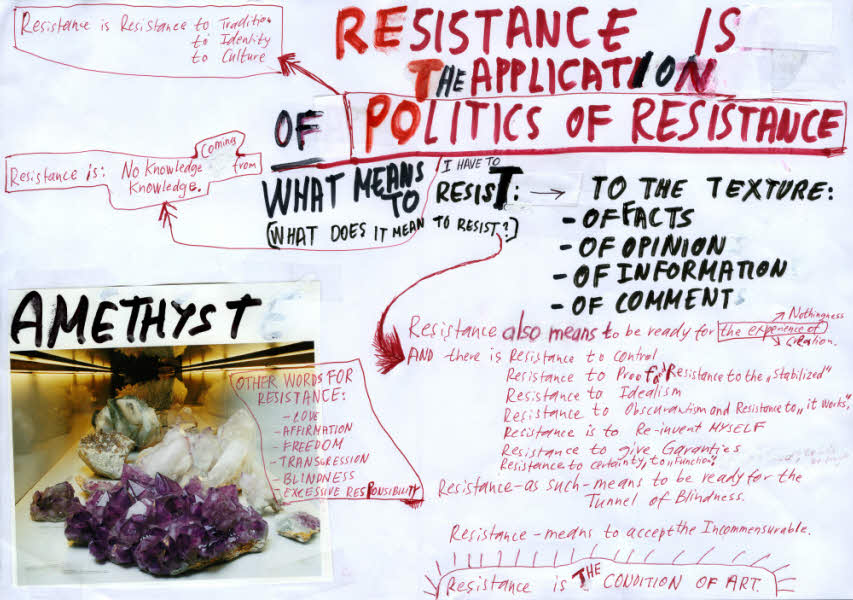 Resistance is Resistance to Tradition
to Identity
to Culture
RESISTANCE IS
THE APPLICATION
OF POLITICS OF RESISTANCE
Resistance is: No Knowledge Comings from
Knowledge.
WHAT MEANS
TO
I HAVE TO
RESIST: → TO THE TEXTURE:
(WHAT DOES IT MEAN TO RESIST?)
- OF FACTS
- OF OPINION
- OF INFORMATION
- OF COMMENT
AMETHYST
OTHER WORDS FOR
RESISTANCE:
- LOVE
- AFFIRMATION
- FREEDOM
- TRANSGRESSION
- BLINDNESS
- EXCESSIVE RESPONSIBILITY
Nothingness
Resistance also means to be ready for the experience of
Creation.
AND there is Resistance to Control
Resistance to Proof Resistance to the „Stabilized"
Resistance to Idealism
Resistance to Obscurantism and Resistance to „it works",
Resistance is to Re-invent MYSELF
Resistance to give Garanties
Resistance to certainty, to „Function"
Resistance-as such-means to be ready for the
Tunnel of Blindness.
Resistance - means to accept the Incommensurable.
Resistance is THE CONDITION OF ART.